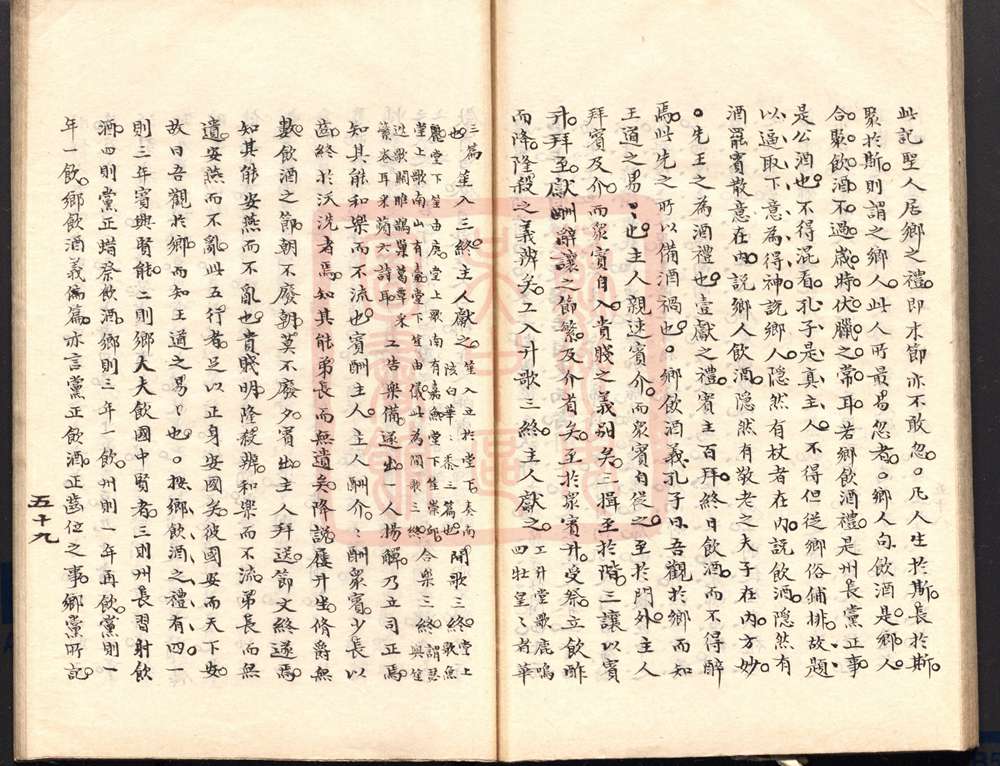 此記聖人居鄉之禮。即末節亦不敢忽。○凡人生於斯。長於斯。
聚於斯。則謂之鄉人。此人所最易忽者。○鄉人句。飲酒是鄉人
合聚飲酒。不過歲時伏臘之常耳。若鄉飲酒禮。是州長黨正事。
是公酒也。不得混看。孔子是真主人。不得但從鄉俗鋪排。故題
以逼取下意為得神。說鄉人。隱然有杖者在內。說飲酒。隱然有
酒罷賓散意在內。說鄉人飲酒。隱然有敬老之夫子在內。方妙。
○先王之為酒禮也。壹獻之禮。賓主百拜。終日飲酒。而不得醉
焉。此先王之所以備酒禍也。○鄉飲酒義。孔子曰。吾觀於鄉。而知
王道之易〻也。主人親速賓介。而眾賓自從之。至於門外。主人
拜賓及介。而眾賓自入。貴賤之義別矣。三揖至於階。三讓以賓
升。拜至。獻酬辭讓之節繁。及介省矣。至於眾賓。升受祭。立飲。酢
而降。隆殺之義辨矣。工入升歌三終。主人獻之。工升堂。歌鹿鳴四牡皇〻者華
三篇也。笙入三終。主人獻之。笙入立於堂下。奏南陔白華〻黍三篇也。間歌三終。堂上歌魚
麗。堂下笙由庚。堂上歌南有嘉魚。堂下笙崇邱。
堂上歌南山有臺。堂下笙由儀。此為間歌三終。合樂三終。謂瑟與笙
迭歌關雎鵲巢葛覃采蘩卷耳采蘋六詩耳。工告樂備。遂出。一人揚觶。乃立司正焉。
知其能和樂而不流也。賓酬主人。主人酬介。〻酬眾賓。少長以
齒。終於沃洗者焉。知其能弟長而無遺矣。降說屨升坐。脩爵無
數。飲酒之節。朝不廢朝。莫不廢夕。賓出。主人拜送。節文終遂焉。
知其能安燕而不亂也。貴賤明。隆殺辨。和樂而不流。弟長而無
遺。安燕而不亂。此五行者。足以正身安國矣。彼國安而天下安。
故曰吾觀於鄉。而知王道之易〻也。○按鄉飲酒之禮有四。一
則三年賓興賢能。二則鄉大夫飲國中賢者。三則州長習射飲
酒。四則黨正蜡祭飲酒。鄉則三年一飲。州則一年再飲。黨則一
年一飲。鄉飲酒義偏篇。亦言黨正飲酒。正齒位之事。鄉黨所記。
五十九